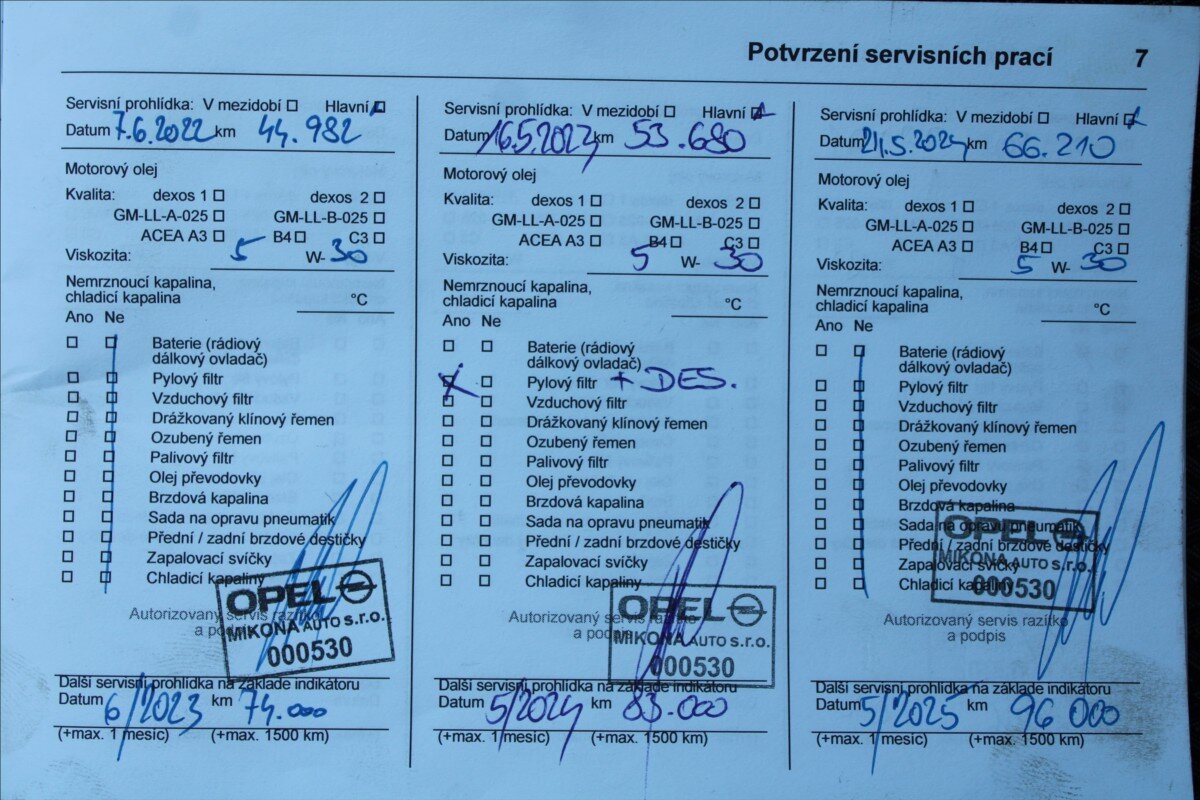 Potvrzení servisních prací 7
Servisní prohlídka: V mezidobí Hlavní
Datum 7.6.2022 km 44.982
Motorový olej
Kvalita: dexos 1 dexos 2
GM-LL-A-025 GM-LL-B-025
ACEA A3 B4 C3
Viskozita: 5 W- 30
Nemrznoucí kapalina,
chladicí kapalina °C
Ano Ne
Baterie (rádiový
dálkový ovladač)
Pylový filtr
Vzduchový filtr
Drážkovaný klínový řemen
Ozubený řemen
Palivový filtr
Olej převodovky
Brzdová kapalina
Sada na opravu pneumatik
Přední / zadní brzdové destičky
Zapalovací svíčky
Chladicí kapaliny
OPEL
Autorizovaný servis razítko
a podpis
MIKONA AUTO s.r.o.
000530
Další servisní prohlídka na základe indikátoru
Datum 6/2023 km 74.000
(+max. 1 mesíc) (+max. 1500 km)
Servisní prohlídka: V mezidobí Hlavní
Datum 16.5.2023 km 53.680
Motorový olej
Kvalita: dexos 1 dexos 2
GM-LL-A-025 GM-LL-B-025
ACEA A3 B4 C3
Viskozita: 5 W- 30
Nemrznoucí kapalina,
chladicí kapalina °C
Ano Ne
Baterie (rádiový
dálkový ovladač)
Pylový filtr + DES.
Vzduchový filtr
Drážkovaný klínový řemen
Ozubený řemen
Palivový filtr
Olej převodovky
Brzdová kapalina
Sada na opravu pneumatik
Přední / zadní brzdové destičky
Zapalovací svíčky
Chladicí kapaliny
OPEL
Autorizovaný servis razítko
a podpis
MIKONA AUTO s.r.o.
000530
Další servisní prohlídka na základe indikátoru
Datum 5/2024 km 83.000
(+max. 1 mesíc) (+max. 1500 km)
Servisní prohlídka: V mezidobí Hlavní
Datum 21.5.2024 km 66.210
Motorový olej
Kvalita: dexos 1 dexos 2
GM-LL-A-025 GM-LL-B-025
ACEA A3 B4 C3
Viskozita: 5 W- 30
Nemrznoucí kapalina,
chladicí kapalina °C
Ano Ne
Baterie (rádiový
dálkový ovladač)
Pylový filtr
Vzduchový filtr
Drážkovaný klínový řemen
Ozubený řemen
Palivový filtr
Olej převodovky
Brzdová kapalina
Sada na opravu pneumatik
Přední / zadní brzdové destičky
Zapalovací svíčky
Chladicí kapaliny
OPEL
MIKONA AUTO s.r.o.
000530
Autorizovaný servis razítko
a podpis
Další servisní prohlídka na základe indikátoru
Datum 5/2025 km 96 000
(+max. 1 mesíc) (+max. 1500 km)